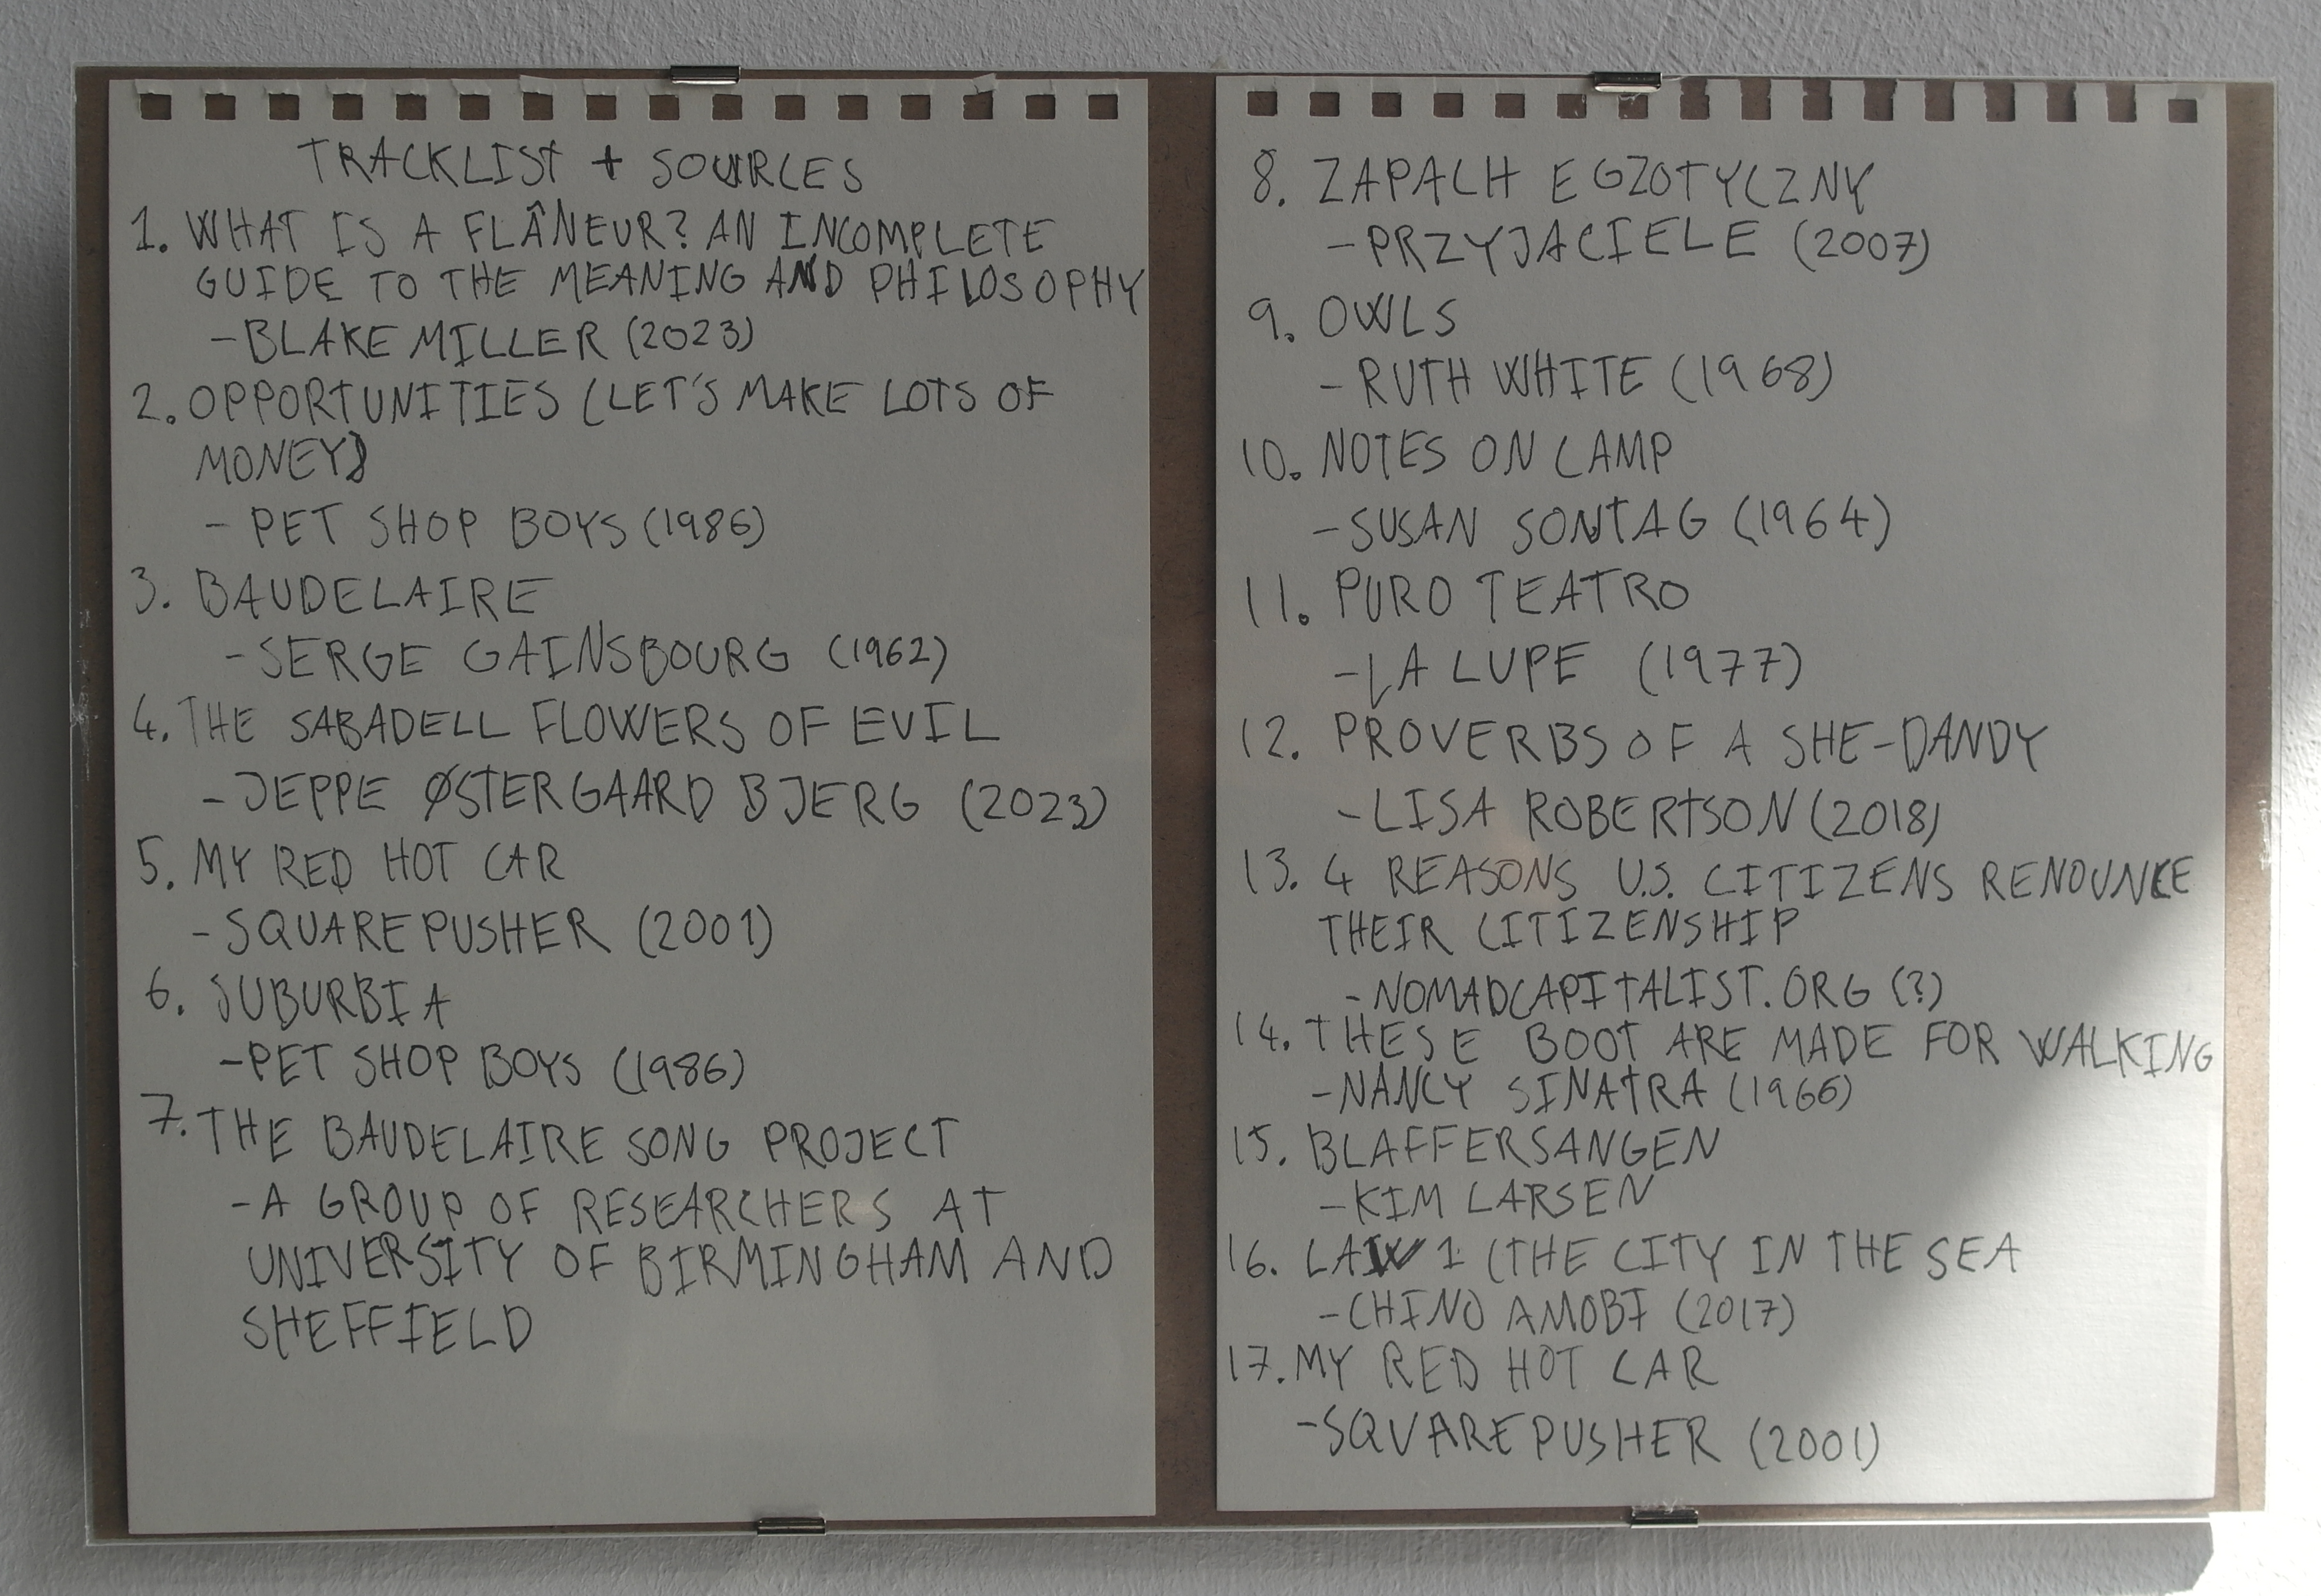 TRACKLIST + SOURCES
1. WHAT IS A FLÂNEUR? AN INCOMPLETE
GUIDE TO THE MEANING AND PHILOSOPHY
- BLAKE MILLER (2023)
2. OPPORTUNITIES (LET'S MAKE LOTS OF
MONEY)
- PET SHOP BOYS (1986)
3. BAUDELAIRE
- SERGE GAINSBOURG (1962)
4. THE SABADELL FLOWERS OF EVIL
- JEPPE ØSTERGAARD BJERG (2023)
5. MY RED HOT CAR
- SQUAREPUSHER (2001)
6. SUBURBIA
- PET SHOP BOYS (1986)
7. THE BAUDELAIRE SONG PROJECT
- A GROUP OF RESEARCHERS AT
UNIVERSITY OF BIRMINGHAM AND
SHEFFIELD
8. ZAPACH EGZOTYCZNY
- PRZYJACIELE (2007)
9. OWLS
- RUTH WHITE (1968)
10. NOTES ON CAMP
- SUSAN SONTAG (1964)
11. PURO TEATRO
- LA LUPE (1977)
12. PROVERBS OF A SHE-DANDY
- LISA ROBERTSON (2018)
13. 4 REASONS U.S. CITIZENS RENOUNCE
THEIR CITIZENSHIP
- NOMADCAPITALIST.ORG (?)
14. THESE BOOT ARE MADE FOR WALKING
- NANCY SINATRA (1966)
15. BLAFFERSANGEN
- KIM LARSEN
16. LAW 1 (THE CITY IN THE SEA
- CHINO AMOBI (2017)
17. MY RED HOT CAR
- SQUAREPUSHER (2001)